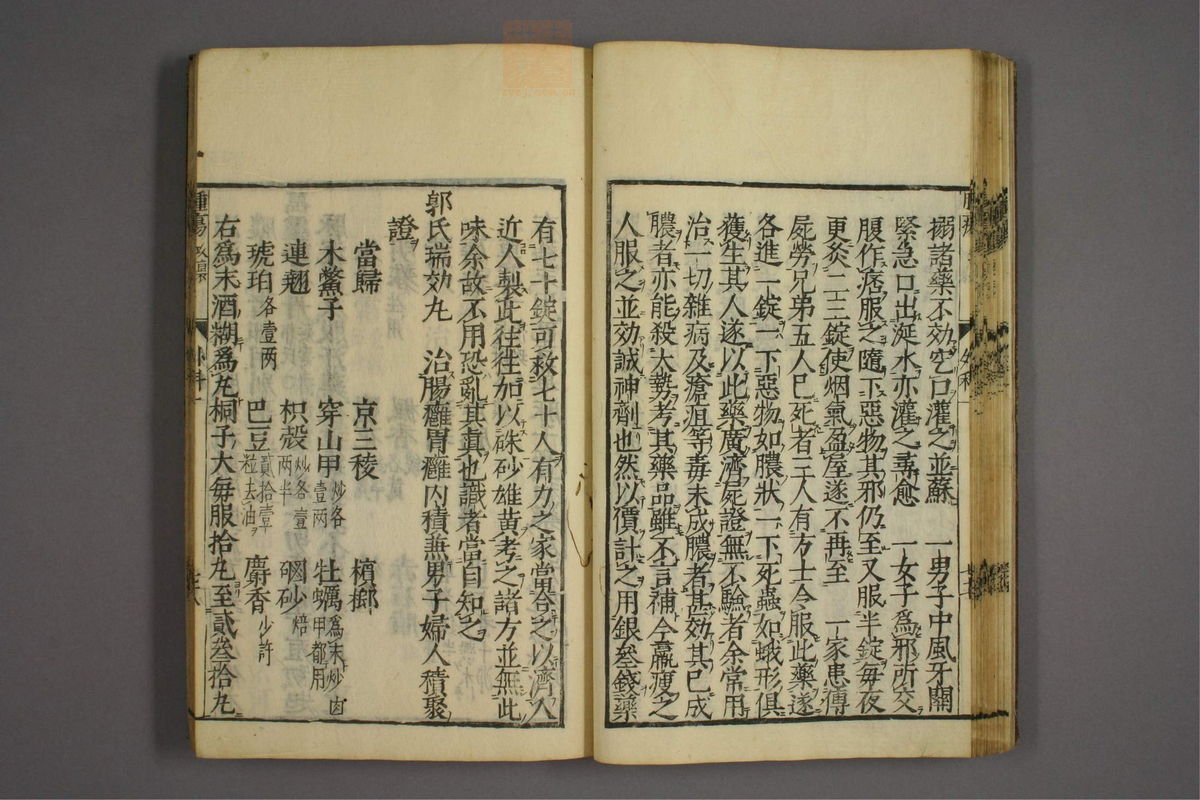 搦諸藥不効空口灌之並蘇　一男子中風牙關
緊急口出涎水亦灌之壽愈　一女子爲邪所交
腹作痞服之隨下惡物其邪仍至又服半錠每夜
更灸二三錠使烟氣盈屋遂不再至　一家患傳
屍勞兄弟五人已死者三人有方士令服此藥遂
各進一錠一下惡物如膿狀一下死蟲如蛾形俱
獲生其人遂以此藥廣濟屍證無不驗者余常用
治一切雜病及瘡疽等毒未成膿者甚効其已成
膿者亦能殺大勢考其藥品雖不言補今羸瘦之
人服之並効誠神劑也然以價計之用銀叄錢藥
有七十錠可救七十人有力之家當合之以濟人
近人製此往往加以硃砂雄黄考之諸方並無此
味余故不用恐亂其眞也識者當自知之
郭氏瑞効丸　治腸癰胃癰内積兼男子婦人積聚
證
當歸　京三稜　檳榔
木鱉子　穿山甲炒各壹两　牡蠣爲末炒
連翹　枳殻炒各壹两半　硇砂焙
琥珀各壹两　巴豆貳拾壹粒去油　麝香少許
右爲末酒糊爲丸桐子大每服拾丸至貳叄拾丸
腫瘍
外科